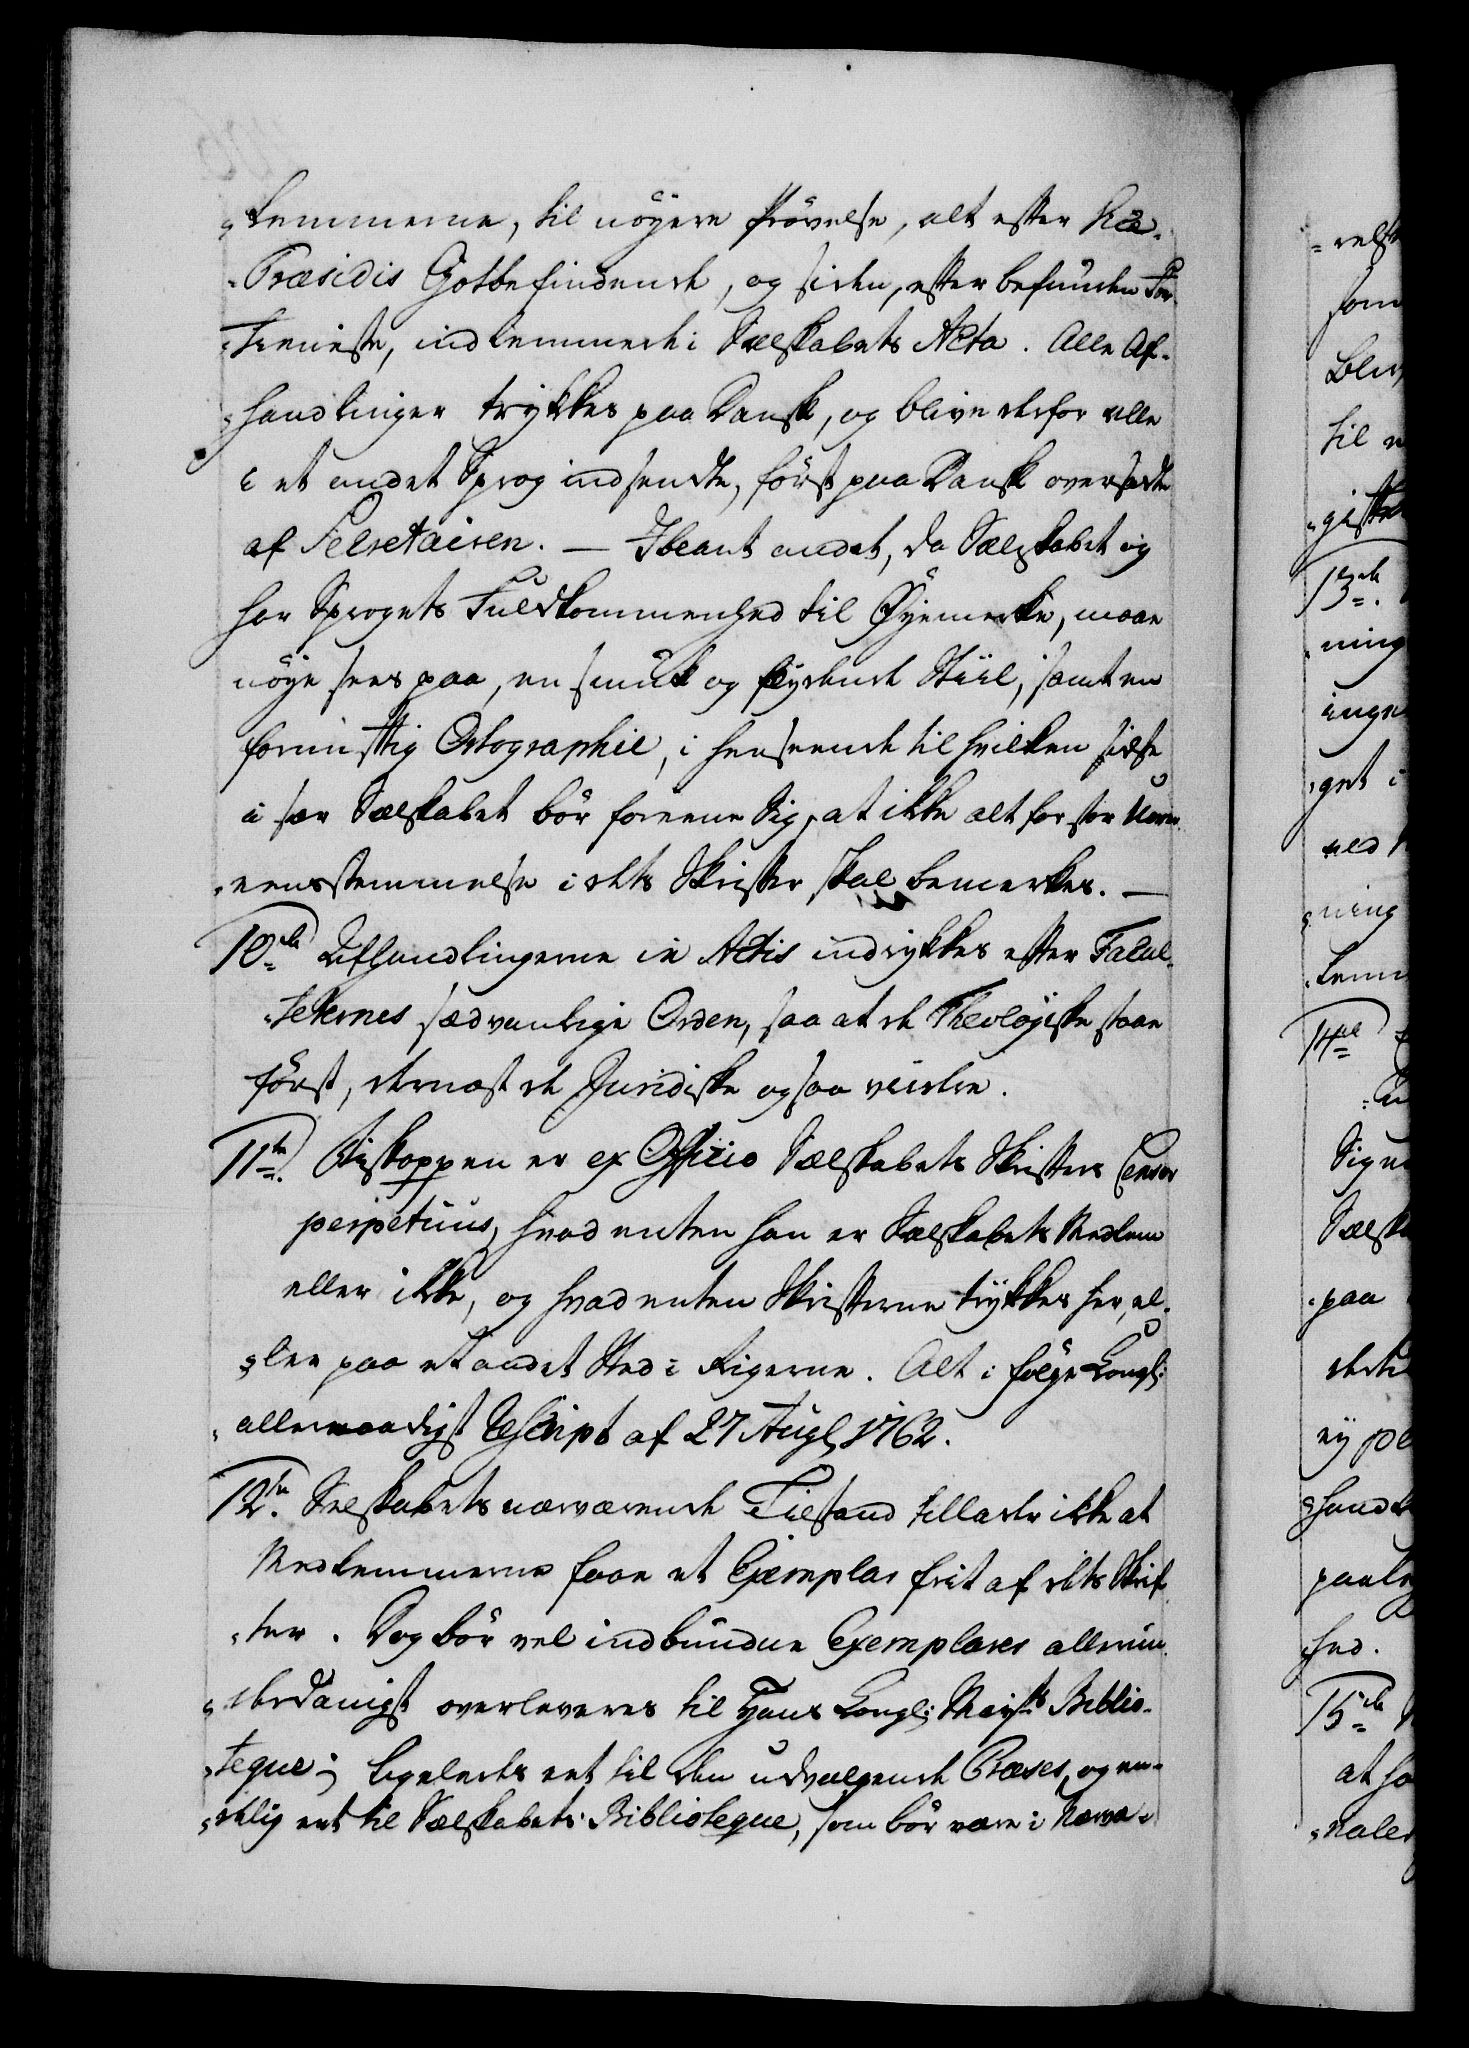 „lemmerne, til nöyere Prövelse, alt efter Vice-
„Præsidis Gotbefindende, og siden, efter befunden For-
„tieneste, indlemmede i Selskabets Acta. Alle Af-
„handlinger trykkes paa Dansk, og blive derfor alle
i et andet Sprog indsendte, först paa Dansk oversadte
af Secretairen. — Iblant andet, da Sælskabet og
har Sprogets Fuldkommenhed til Øyemerke, maae
nöye sees paa, en smuk og flydende Stiil, samt en
fornuftig Ortographie, i henseende til hvilken sidste
i sær Sælskabet bör foreene Sig, at ikke alt for stor Uover-
„eensstemmelse i dets Skrifter skal bemerkes. —
10de Afhandlingerne in Actis indrykkes efter Facul-
„teternes sædvanlige Orden, saa at de Theologiske staae
först, dernæst de Juridiske og saa videre.
11te. Biskoppen er ex Officio Sælskabets Skrifters Censor
perpetuus, hvad enten han er Sælskabets Medlem
eller ikke, og hvad enten Skrifterne trykkes her, el-
„ler paa et andet Sted i Rigerne. Alt i fölge Kongl:
allernaadigst Rescript af 27 Aug: 1762.
12te. Selskabets nærværende Tilstand tillader ikke at
Medlemmerne faae et Exemplar frit af dets Skrif-
„ter. Dog bör vel indbundne Exemplarer allerun-
„derdanigst overleveres til Hans Kongl: Mayts Biblio-
„teque; ligeledes eet til den udvalgende Præses, og en-
„delig eet til Sælskabets Biblioteque, som bör være i Nærva-